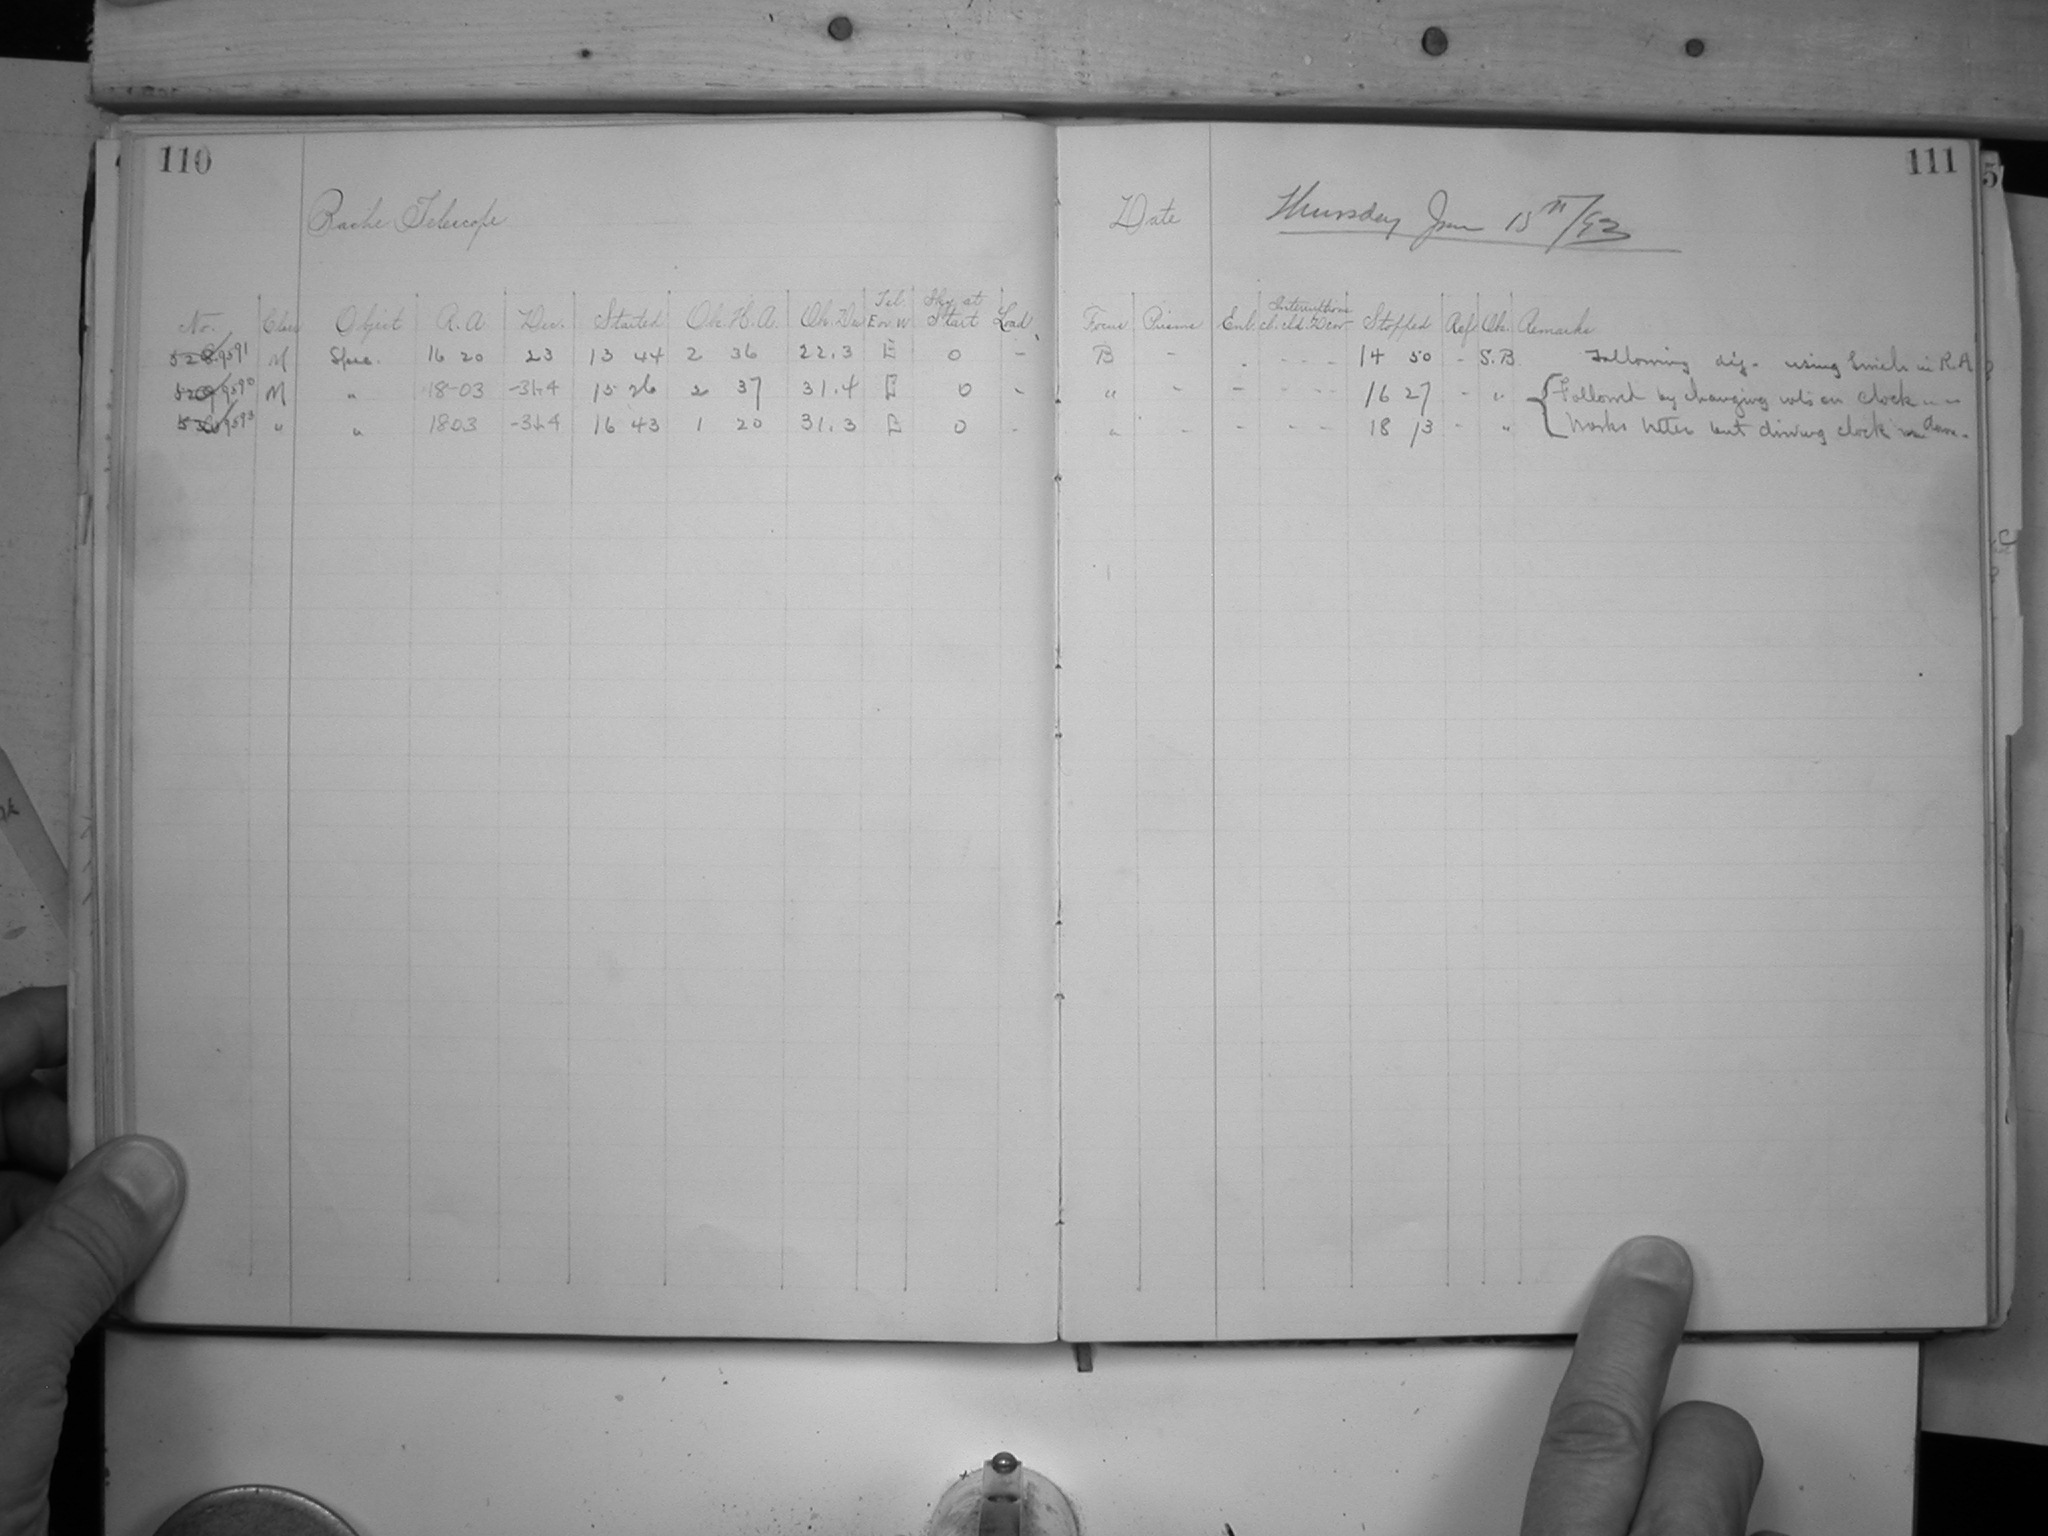 110
111
5
Bache Telescope
Date Thursday June 15th/93
No. Class Object R.A Dec. Started Obs. H.A. Obs. Dec Tel. E or W Sky at Start Load Focus Prisms Enl. Interruptions ch. cld. Dew Stopped Ref. Ob. Remarks
9591 M Spec. 16 20 23 13 44 2 36 22.3 E 0 - B - - - - - 14 50 - S.B. Following using in R.A
9590 M " 18-03 15 26 2 37 31.4 E 0 - " - - - - - 16 27 - " Followed by changing on clock
9593 " " 1803 16 43 1 20 31.3 E 0 - " - - - - - 18 13 - " Works better but driving clock